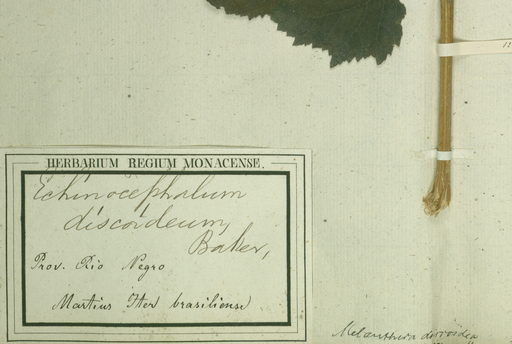 HERBARIUM REGIUM MONACENSE.
Echinocephalum
discoideum,
Baker,
Prov. Rio Negro
Martius Iter brasiliense
Melanthera